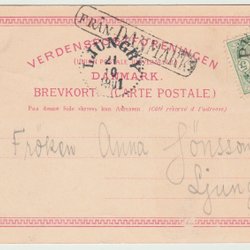 FRÅN DANMARK
VERDENSPOSTFORENINGEN
(UNION POSTALE UNIVERSELLE)
LJUNGBY
21
DANMARK.
BREVKORT (CARTE POSTALE)
Paa denne Side skrives kun Adressen. (Côté réservé à l'adresse)
Fröken Anna Jönsson
Ljung